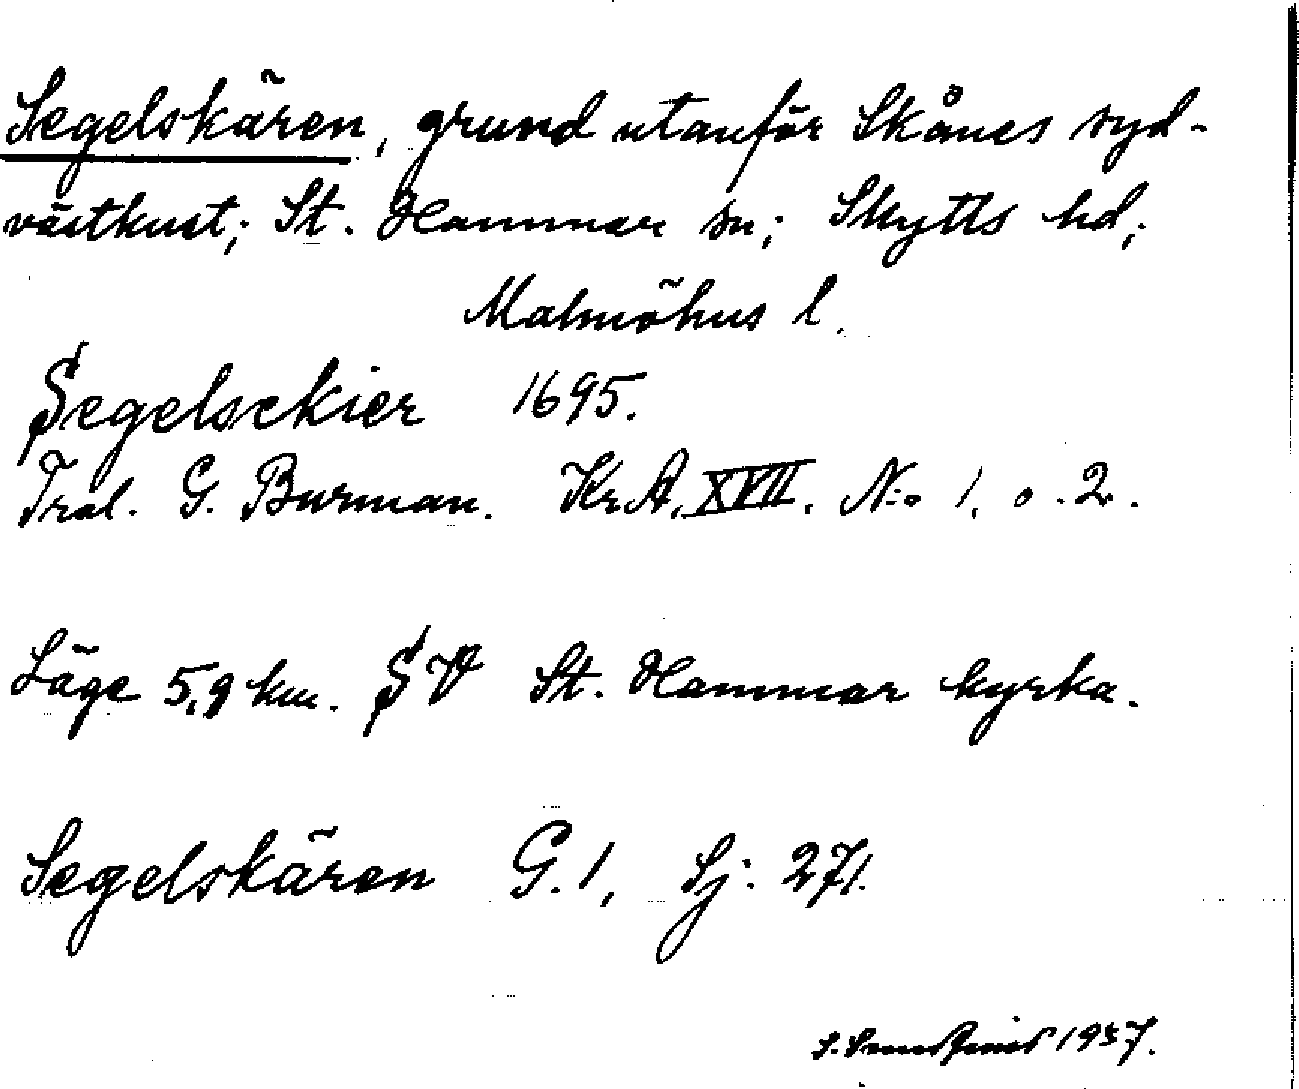 Segelskären, grund utanför Skånes syd-
västkust; St. Hammar sn; Skytts hd;
Malmöhus l.
Segelsckier 1695.
Tral. G. Burman. Kr.A. XVII. N:o 1. o. 2.
Läge 5,9 km. SV St. Hammar kyrka.
Segelskären G. 1, Sj: 271.
S. 1937.